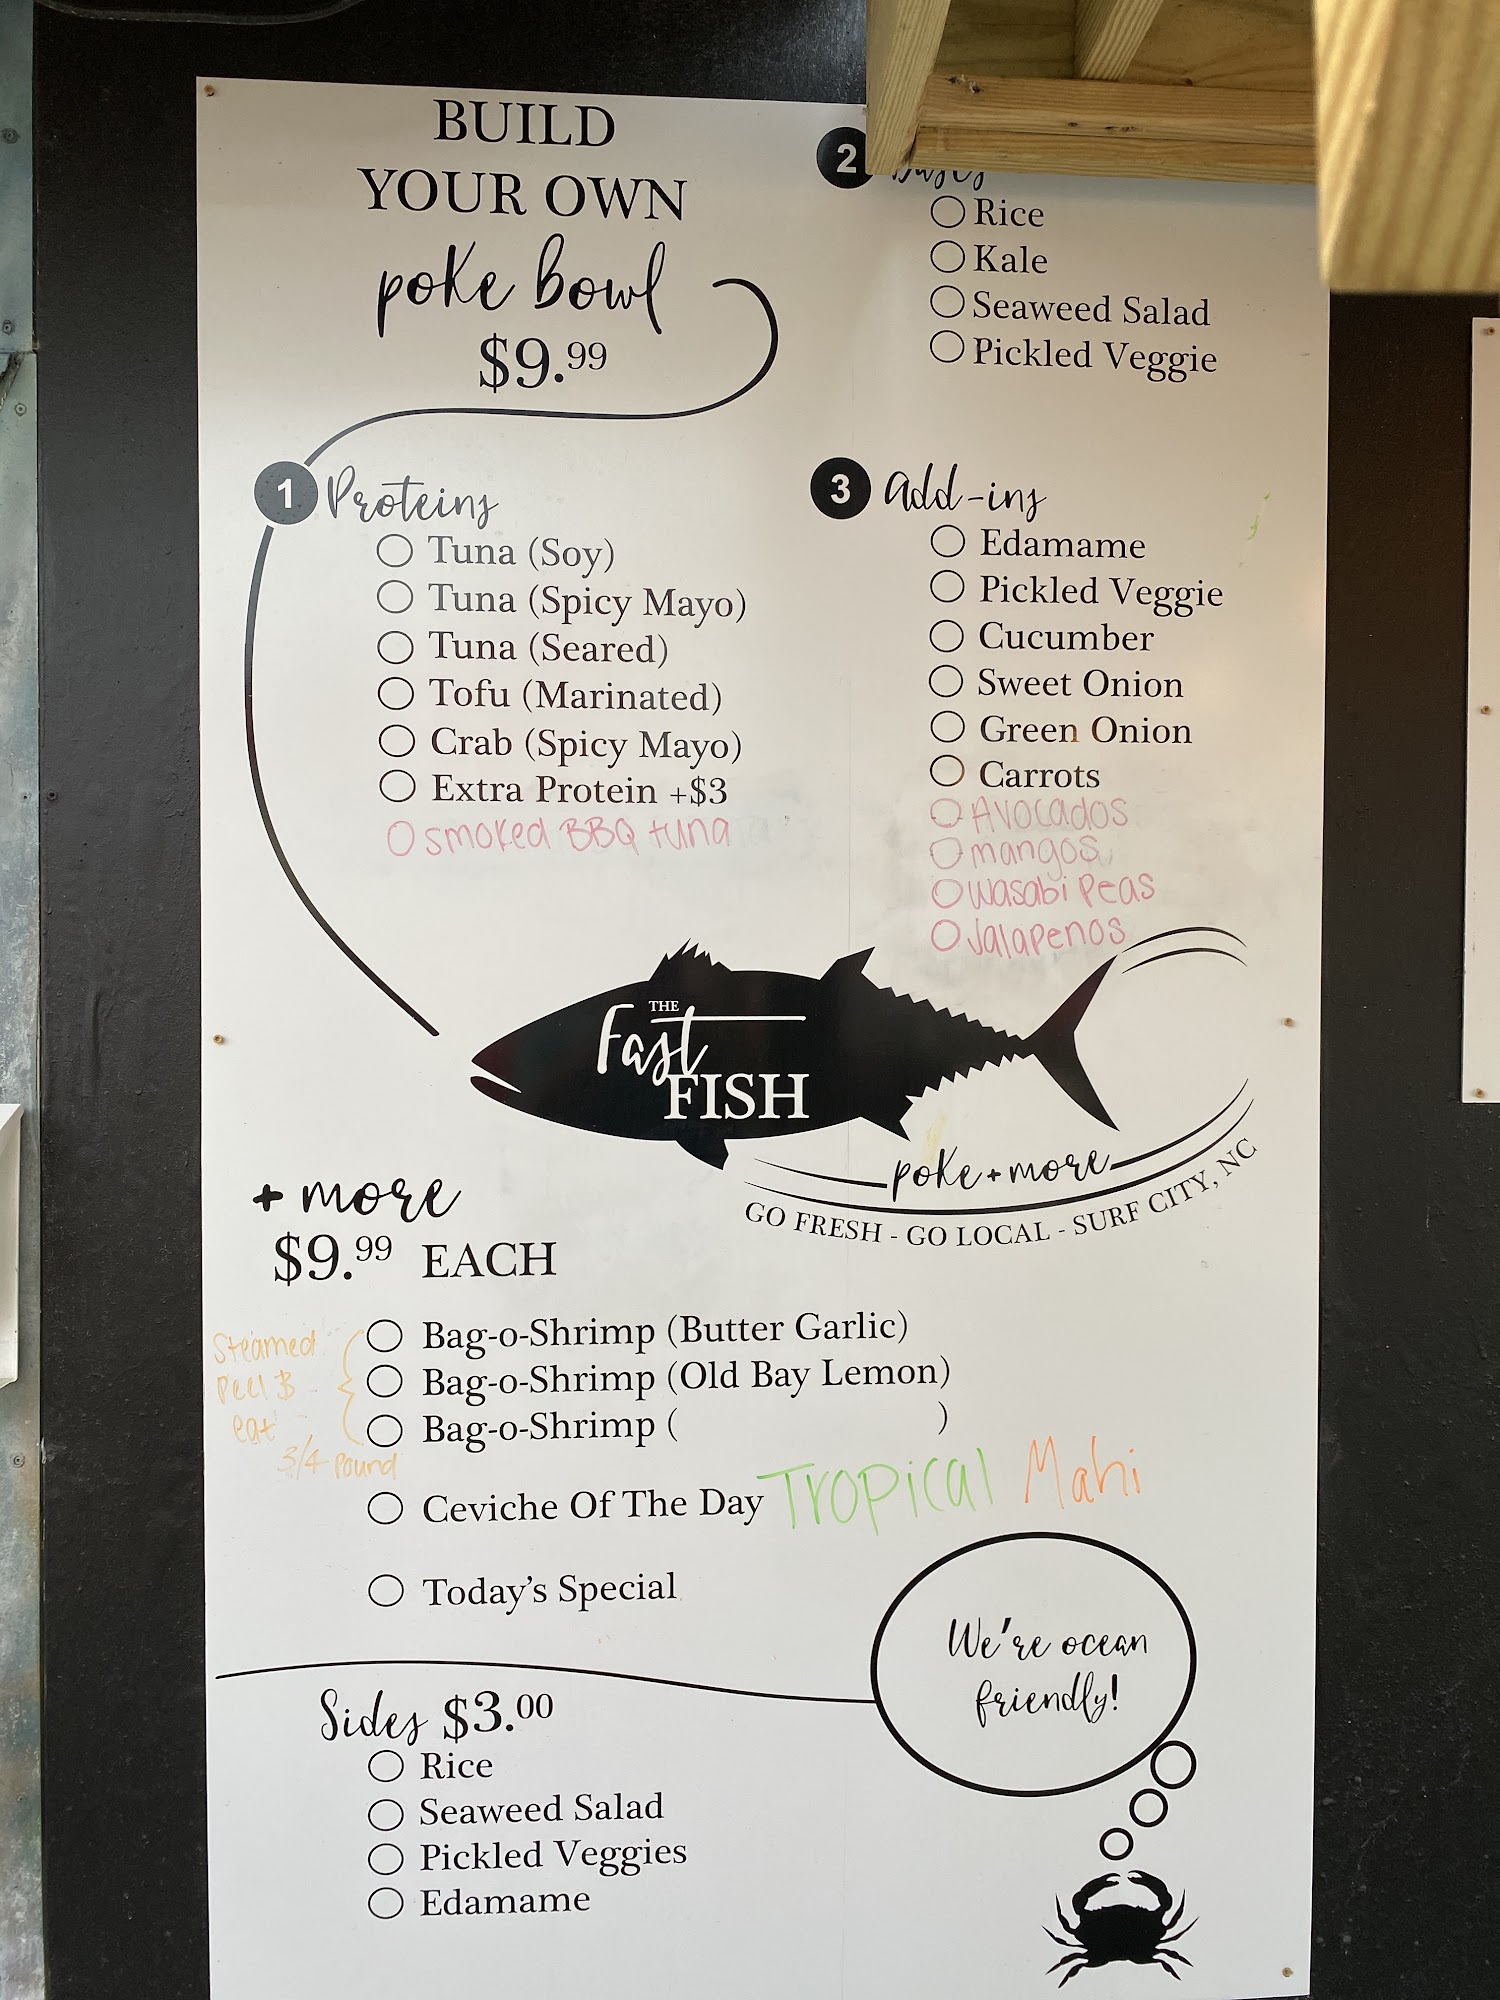 BUILD
YOUR OWN
poke bowl
$9.99
1 Proteins
Tuna (Soy)
Tuna (Spicy Mayo)
Tuna (Seared)
Tofu (Marinated)
Crab (Spicy Mayo)
Extra Protein +$3
smoked BBQ tuna
2
Rice
Kale
Seaweed Salad
Pickled Veggie
3 Add-ins
Edamame
Pickled Veggie
Cucumber
Sweet Onion
Green Onion
Carrots
Avocados
mangos
wasabi Peas
Jalapenos
THE
Fast
FISH
poke + more
GO FRESH - GO LOCAL - SURF CITY, NC
+ more
$9.99 EACH
Steamed
Peel &
eat
3/4 Pound
Bag-o-Shrimp (Butter Garlic)
Bag-o-Shrimp (Old Bay Lemon)
Bag-o-Shrimp ( )
Ceviche Of The Day Tropical Mahi
Today's Special
We're ocean
friendly!
Sides $3.00
Rice
Seaweed Salad
Pickled Veggies
Edamame